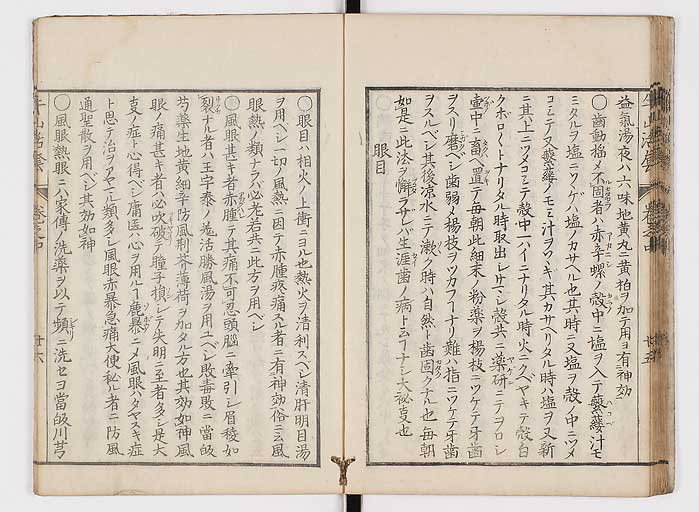 益氣湯夜ハ六味地黄丸ニ黄柏ヲ加テ用ヨ有神効
○齒動揺メ不固者ハ赤辛螺ノ殻中ニ塩ヲ入テ蘩蔞汁モ
ミタルヲ塩ニツグベ塩ノカサヘル也其時ニ又塩ヲ殻ノ中ニツメ
コミテ又蘩蔞ノモミ汁ヲツギ其カサヘリタル時ハ塩ヲ又新
ニ其上ニツメコミテ殻中一ハイニナリタル時火ニクベヤキテ殻白
クボロくトナリタル時取出シサマシ殻共ニ薬研ニテヲロシ
壷中ニ畜ヘ置テ毎朝此細末ノ粉薬ヲ楊枝ニツケテ牙齒
ヲスリ磨ベシ齒弱メ楊枝ヲツカフ一ナリ難ハ指ニツケテ牙齒
ヲスルベシ其後凉水ニテ漱ク時ハ自然ト齒固クナル也毎朝
如是ニ此法ヲ懈ラザレバ生涯齒ノ病ト云フ一ナシ大秘支也
眼目
○眼目ハ相火ノ上衝ニヨル也熱火ヲ清利スベシ清肝明目湯
ヲ用ベシ一切ノ風熱ニ因テ赤腫疼痛スル者ニ有神効俗ニ云風
眼熱ノ類ナラバ必老若共ニ此方ヲ用ベシ
○風眼甚キ者赤腫テ其痛不可忍頭脳ニ牽引シ眉稜如
裂ナル者ハ王字泰ノ選活勝風湯ヲ用ユベシ敗毒散ニ當皈
芍藥生地黄細辛防風荊芥薄荷ヲ加タル方也其効如神風
眼ノ痛甚キ者ハ必吹破テ瞳子損シテ失明ニ至者多シ是大
支ノ症ト心得ベシ庸医ハ心ヲ用ルー麁暴ニメ風眼ハタヤスキ症
ト思テ治ヲアヤマル類多シ風眼赤暴急痛大便秘ル者ニ防風
通聖散ヲ用ベシ其効如神
○風眼熱眼ニハ家傳ノ洗薬ヲ以テ頻ニ洗セヨ當皈川芎